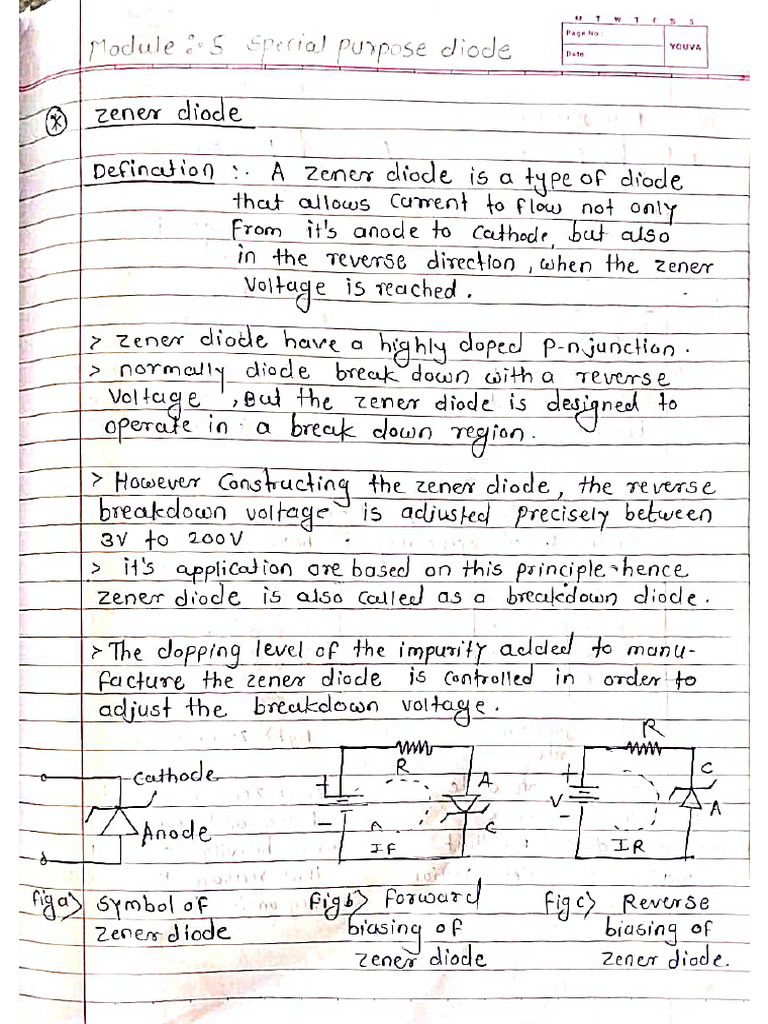 M T W T F S S
Page No.:
Date:
YOUVA
Module :- 5 Special purpose diode
* zener diode
Defination :- A zener diode is a type of diode
that allows current to flow not only
from it's anode to cathode, but also
in the reverse direction, when the zener
voltage is reached.
> zener diode have a highly doped p-n junction.
> normally diode break down with a reverse
voltage, But the zener diode is designed to
operate in a break down region.
> However constructing the zener diode, the reverse
breakdown voltage is adjusted precisely between
3V to 200V
> it's application are based on this principle hence
zener diode is also called as a breakdown diode.
> The dopping level of the impurity added to manu-
facture the zener diode is controlled in order to
adjust the breakdown voltage.
Cathode
Anode
R
+
-
A
C
IF
R
+
V
-
C
A
IR
Fig a> symbol of
zener diode
Fig b> Forward
biasing of
zener diode
Fig c> Reverse
biasing of
zener diode.